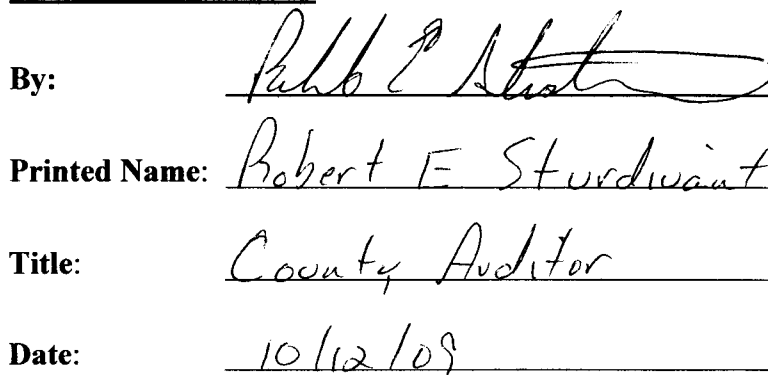 By:
Printed Name: Robert E Sturdivant
Title: County Auditor
Date: 10/12/09